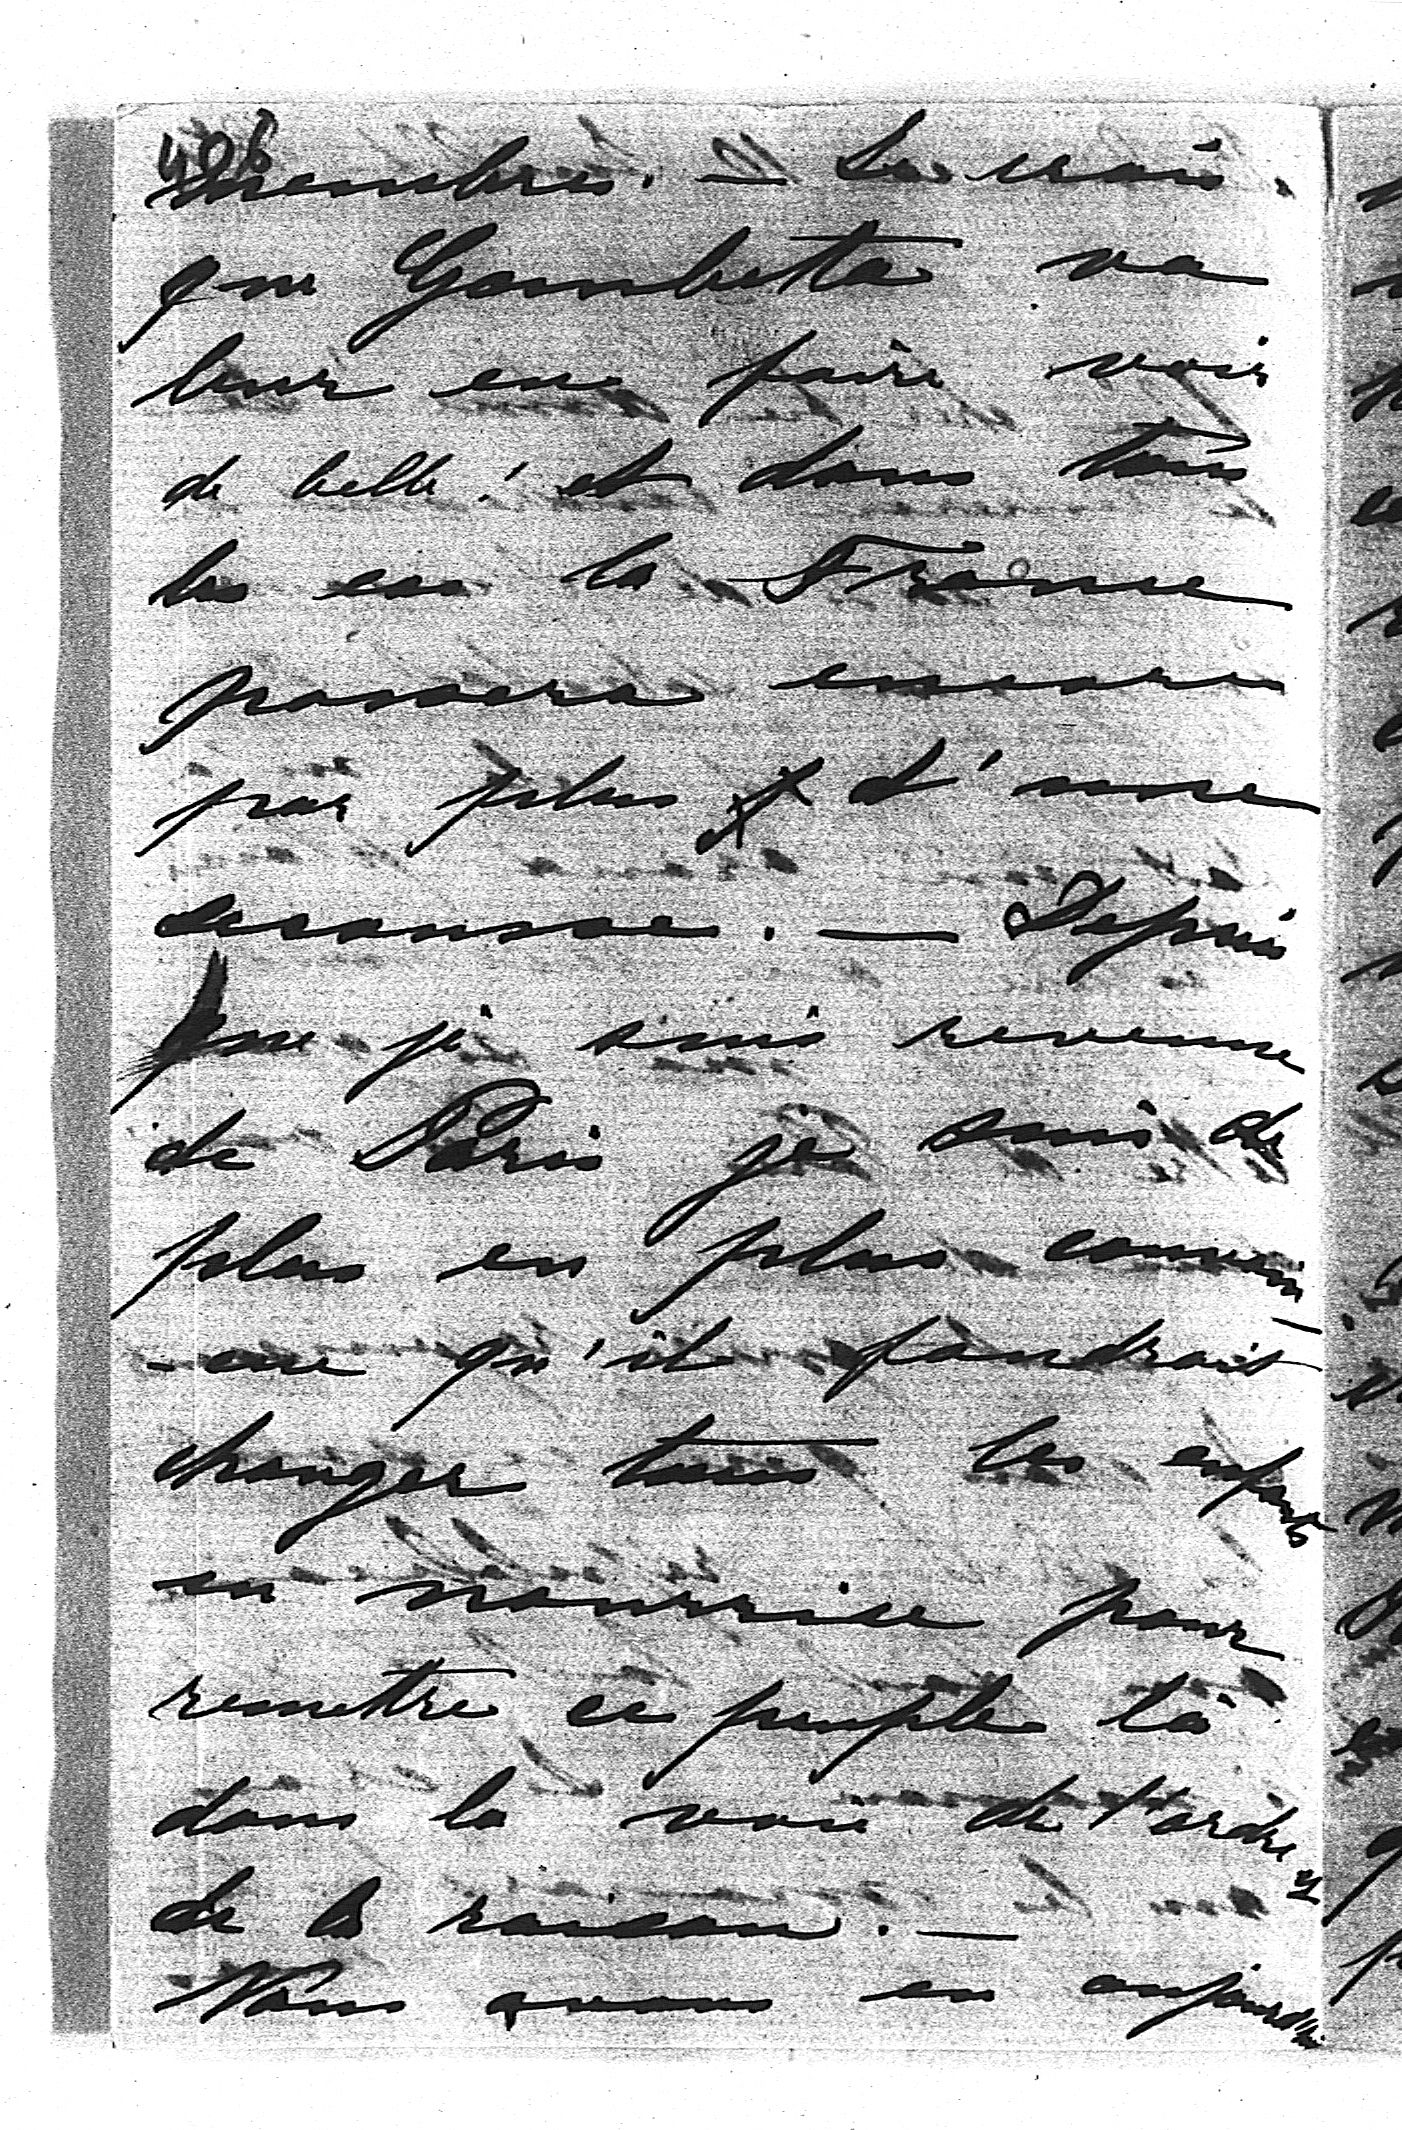 426
membres. — Je crois
que Gambetta va
leur en faire voir
de belle! et dans tous
les cas la France
passera encore
par plus d'une
secousse. — Depuis
que je suis revenue
de Paris je suis de
plus en plus convain
-cue qu'il faudrait
changer tous les enfants
en nourrice pour
remettre ce peuple là
dans la voie de l'ordre
de la raison. —
Nous avons eu aujourd'hui